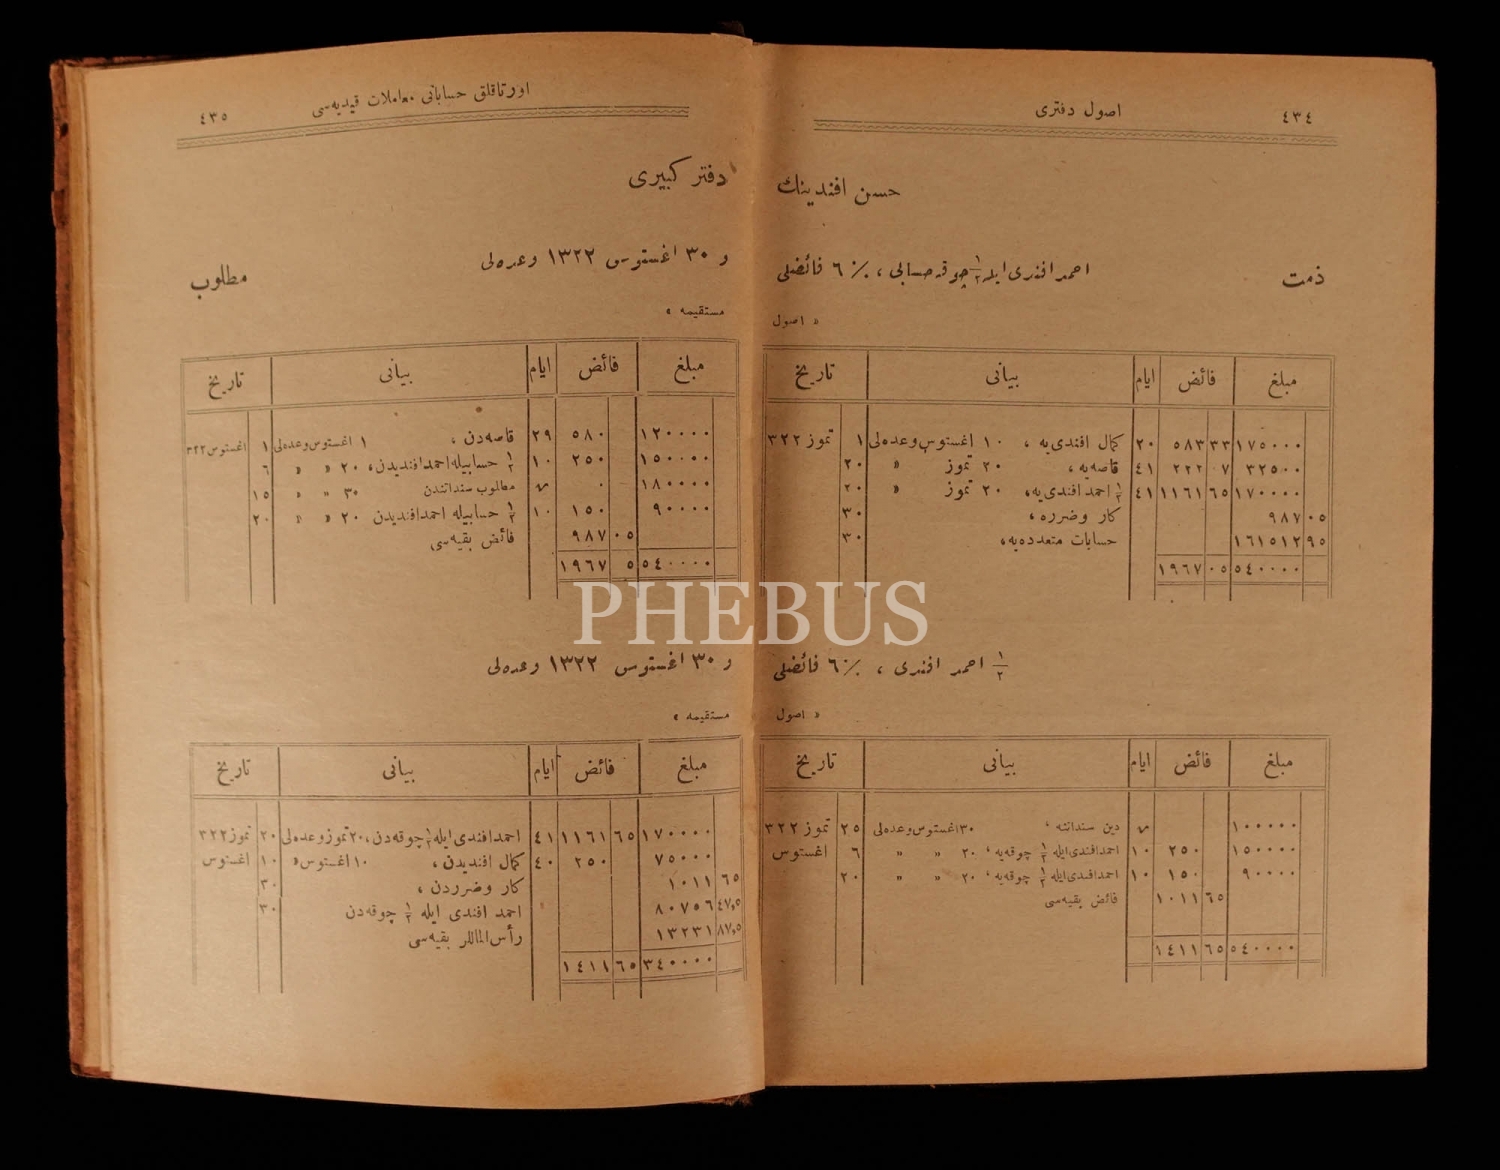 ٤٣٤
اصول دفتری
حسن افندینك
ذمت
احمد افندی ایله ١/٢ چوقه حسابی ، ٪ ٦ فائضلی
« اصول
مبلغ فائض ایام بیانی تاریخ
١٧٥٠٠٠ ٣٣ ٥٨٣ ٢٠ كمال افندی‌یه ، ١٠ اغستوس وعده‌لی ١ تموز ٣٢٢
٣٢٥٠٠ ٧ ٢٢٢ ٤١ قاصه‌یه، ٢٠ تموز » ٢٠
١٧٠٠٠٠ ٦٥ ١١٦١ ٤١ ١/٢ احمد افندی‌یه، ٢٠ تموز » ٢٠
٠٥ ٩٨٧ كار وضرره ، ٣٠
٩٥ ١٦١٥١٢ حسابات متعدده‌یه، ٣٠
٥٤٠٠٠٠ ٠٥ ١٩٦٧
١/٢ احمد افندی ، ٪ ٦ فائضلی
« اصول
مبلغ فائض ایام بیانی تاریخ
١٠٠٠٠٠ دین سنداتنه ، ٣٠ اغستوس وعده‌لی ٢٥ تموز ٣٢٢
١٥٠٠٠٠ ٢٥٠ ١٠ احمد افندی ایله ١/٢ چوقه‌یه ، ٢٠ » » ٦ اغستوس
٩٠٠٠٠ ١٥٠ ١٠ احمد افندی ایله ١/٢ چوقه‌یه ، ٢٠ » » ٢٠
٦٥ ١٠١١ فائض بقیه‌سی
٥٤٠٠٠٠ ٦٥ ١٤١١
اورتاقلق حساباتی معاملات قیدیه‌سی
٤٣٥
دفتر كبیری
و ٣٠ اغستوس ١٣٢٢ وعده‌لی
مطلوب
مستقیمه »
مبلغ فائض ایام بیانی تاریخ
١٢٠٠٠٠ ٥٨٠ ٢٩ قاصه‌دن ، ١ اغستوس وعده‌لی ١ اغستوس ٣٢٢
١٥٠٠٠٠ ٢٥٠ ١٠ ١/٢ حسابیله احمد افندیدن، ٢٠ » » ٦
١٨٠٠٠٠ ٠ مطلوب سنداتندن ٣٠ » » ١٥
٩٠٠٠٠ ١٥٠ ١٠ ١/٢ حسابیله احمد افندیدن ٢٠ » » ٢٠
٠٥ ٩٨٧ فائض بقیه‌سی
٥٤٠٠٠٠ ٥ ١٩٦٧
و ٣٠ اغستوس ١٣٢٢ وعده‌لی
مستقیمه »
مبلغ فائض ایام بیانی تاریخ
١٧٠٠٠٠ ٦٥ ١١٦١ ٤١ احمد افندی ایله ١/٢ چوقه‌دن، ٢٠ تموز وعده‌لی ٢٠ تموز ٣٢٢
٧٥٠٠٠ ٢٥٠ ٤٠ كمال افندیدن ، ١٠ اغستوس » ١٠ اغستوس
٦٥ ١٠١١ كار وضرردن ، ٣٠
٤٧,٥ ٨٠٧٥٦ احمد افندی ایله ١/٢ چوقه‌دن ٣٠
٨٧,٥ ١٣٢٣١ رأس‌الماللر بقیه‌سی
٣٤٠٠٠٠ ٦٥ ١٤١١
PHEBUS